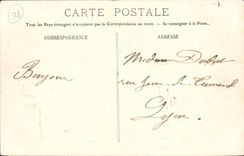 38
CARTE POSTALE
Tous les Pays étrangers n'acceptent pas la Correspondance au recto. - Se renseigner à la Poste.
CORRESPONDANCE
ADRESSE
Bonjour
Madame
rue
Lyon.